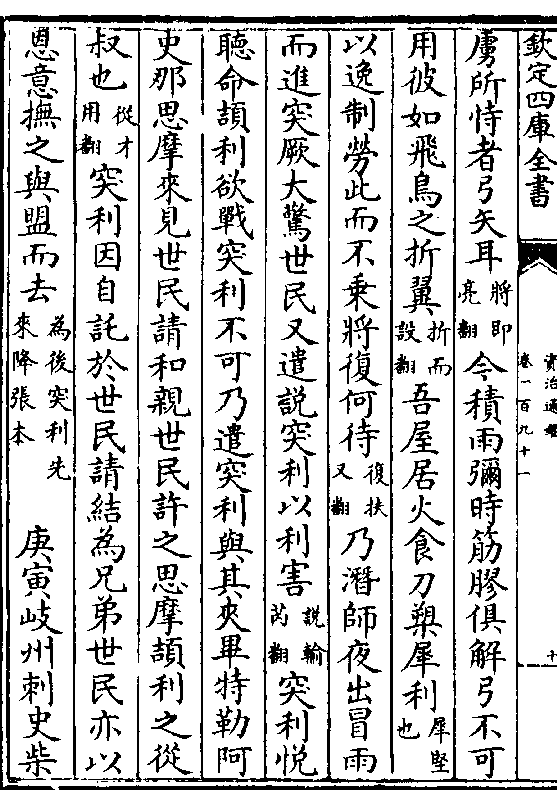 欽定四庫全書
資治通鑑
卷一百九十一
十
虜所恃者弓矢耳將即亮翻今積雨彌時筋膠俱解弓不可
用彼如飛鳥之折翼折而設翻吾屋居火食刀槊犀利犀堅也
以逸制勞此而不乗將復何待復扶又翻乃潛師夜出冒雨
而進突厥大驚世民又遣說突利以利害說輸芮翻突利悅
聽命頡利欲戰突利不可乃遣突利與其夾畢特勒阿
史那思摩來見世民請和親世民許之思摩頡利之從
叔也從才用翻突利因自託於世民請結為兄弟世民亦以
恩意撫之與盟而去為後突利先來降張本 庚寅岐州刺史柴